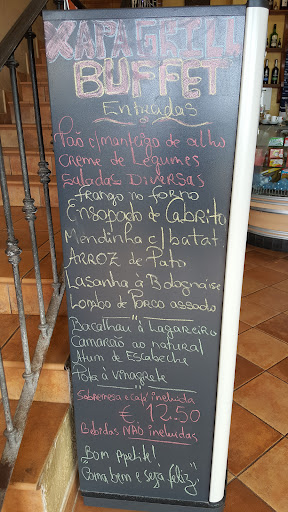 XAPAGRILL
BUFFET
Entradas
Pão c/manteiga de alho
creme de Legumes
Saladas Diversas
frango no forno
Ensopado de Cabrito
Mendinha c/batat
Arroz de Pato
Lasanha à Bolognaise
Lombo de Porco assado
Bacalhau à Lagareiro
Camarão ao natural
Atum de Escabeche
à vinagrete
Sobremesa e café incluida
€ 12.50
Bebidas NÃO incluidas
Bom Apetite!
Coma bem e seja feliz